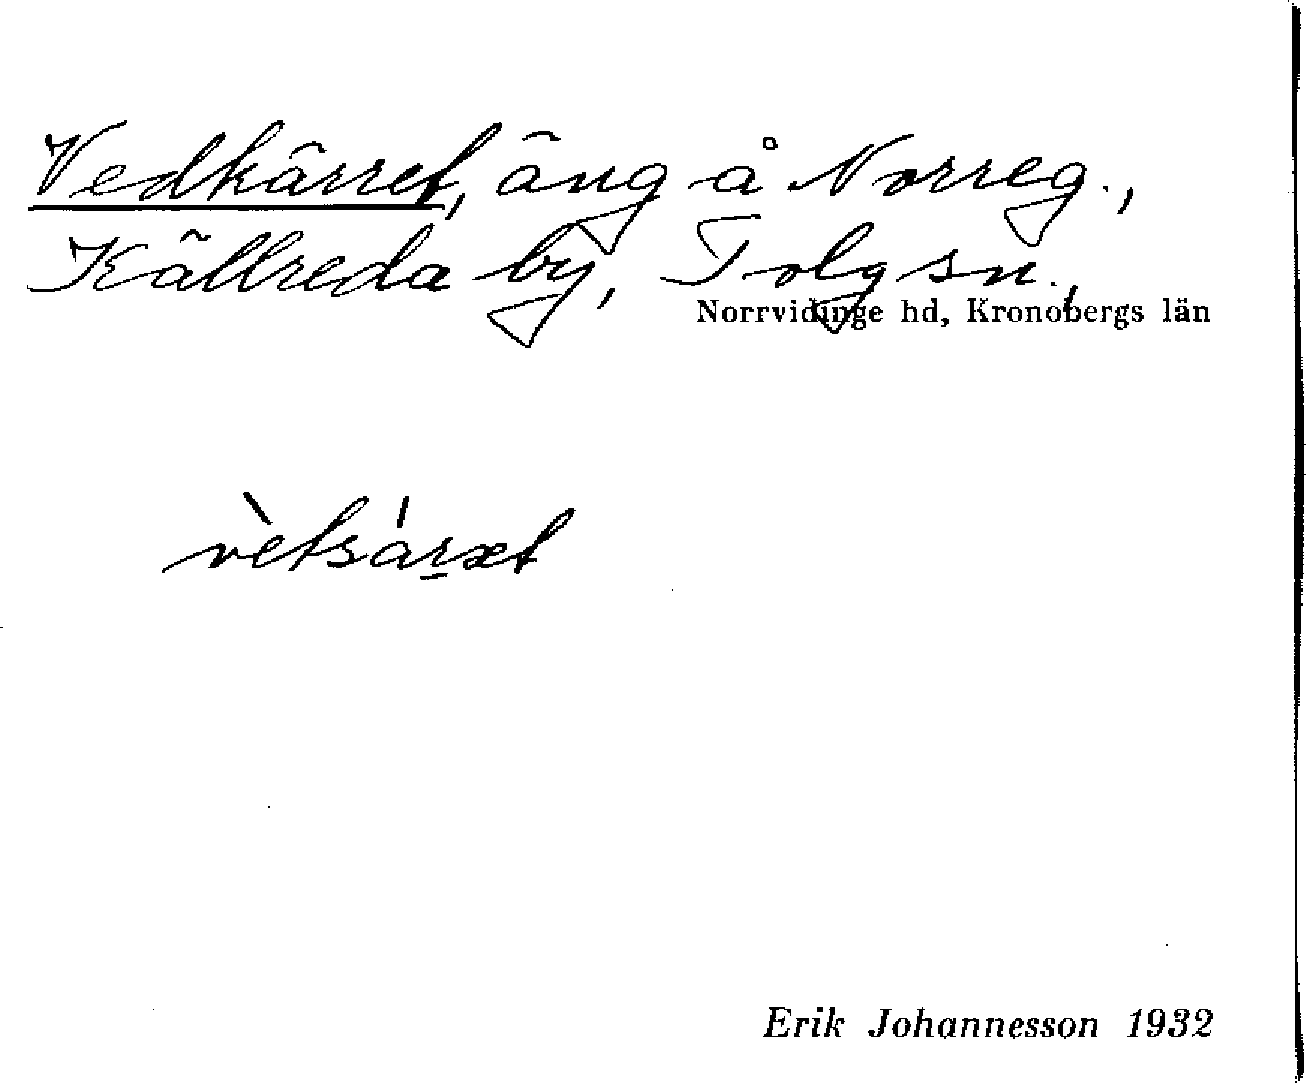 Vedkärret, äng å Norreg.,
Källreda by, Tolg sn.,
Norrvidinge hd, Kronobergs län
vètsárxt
Erik Johannesson 1932